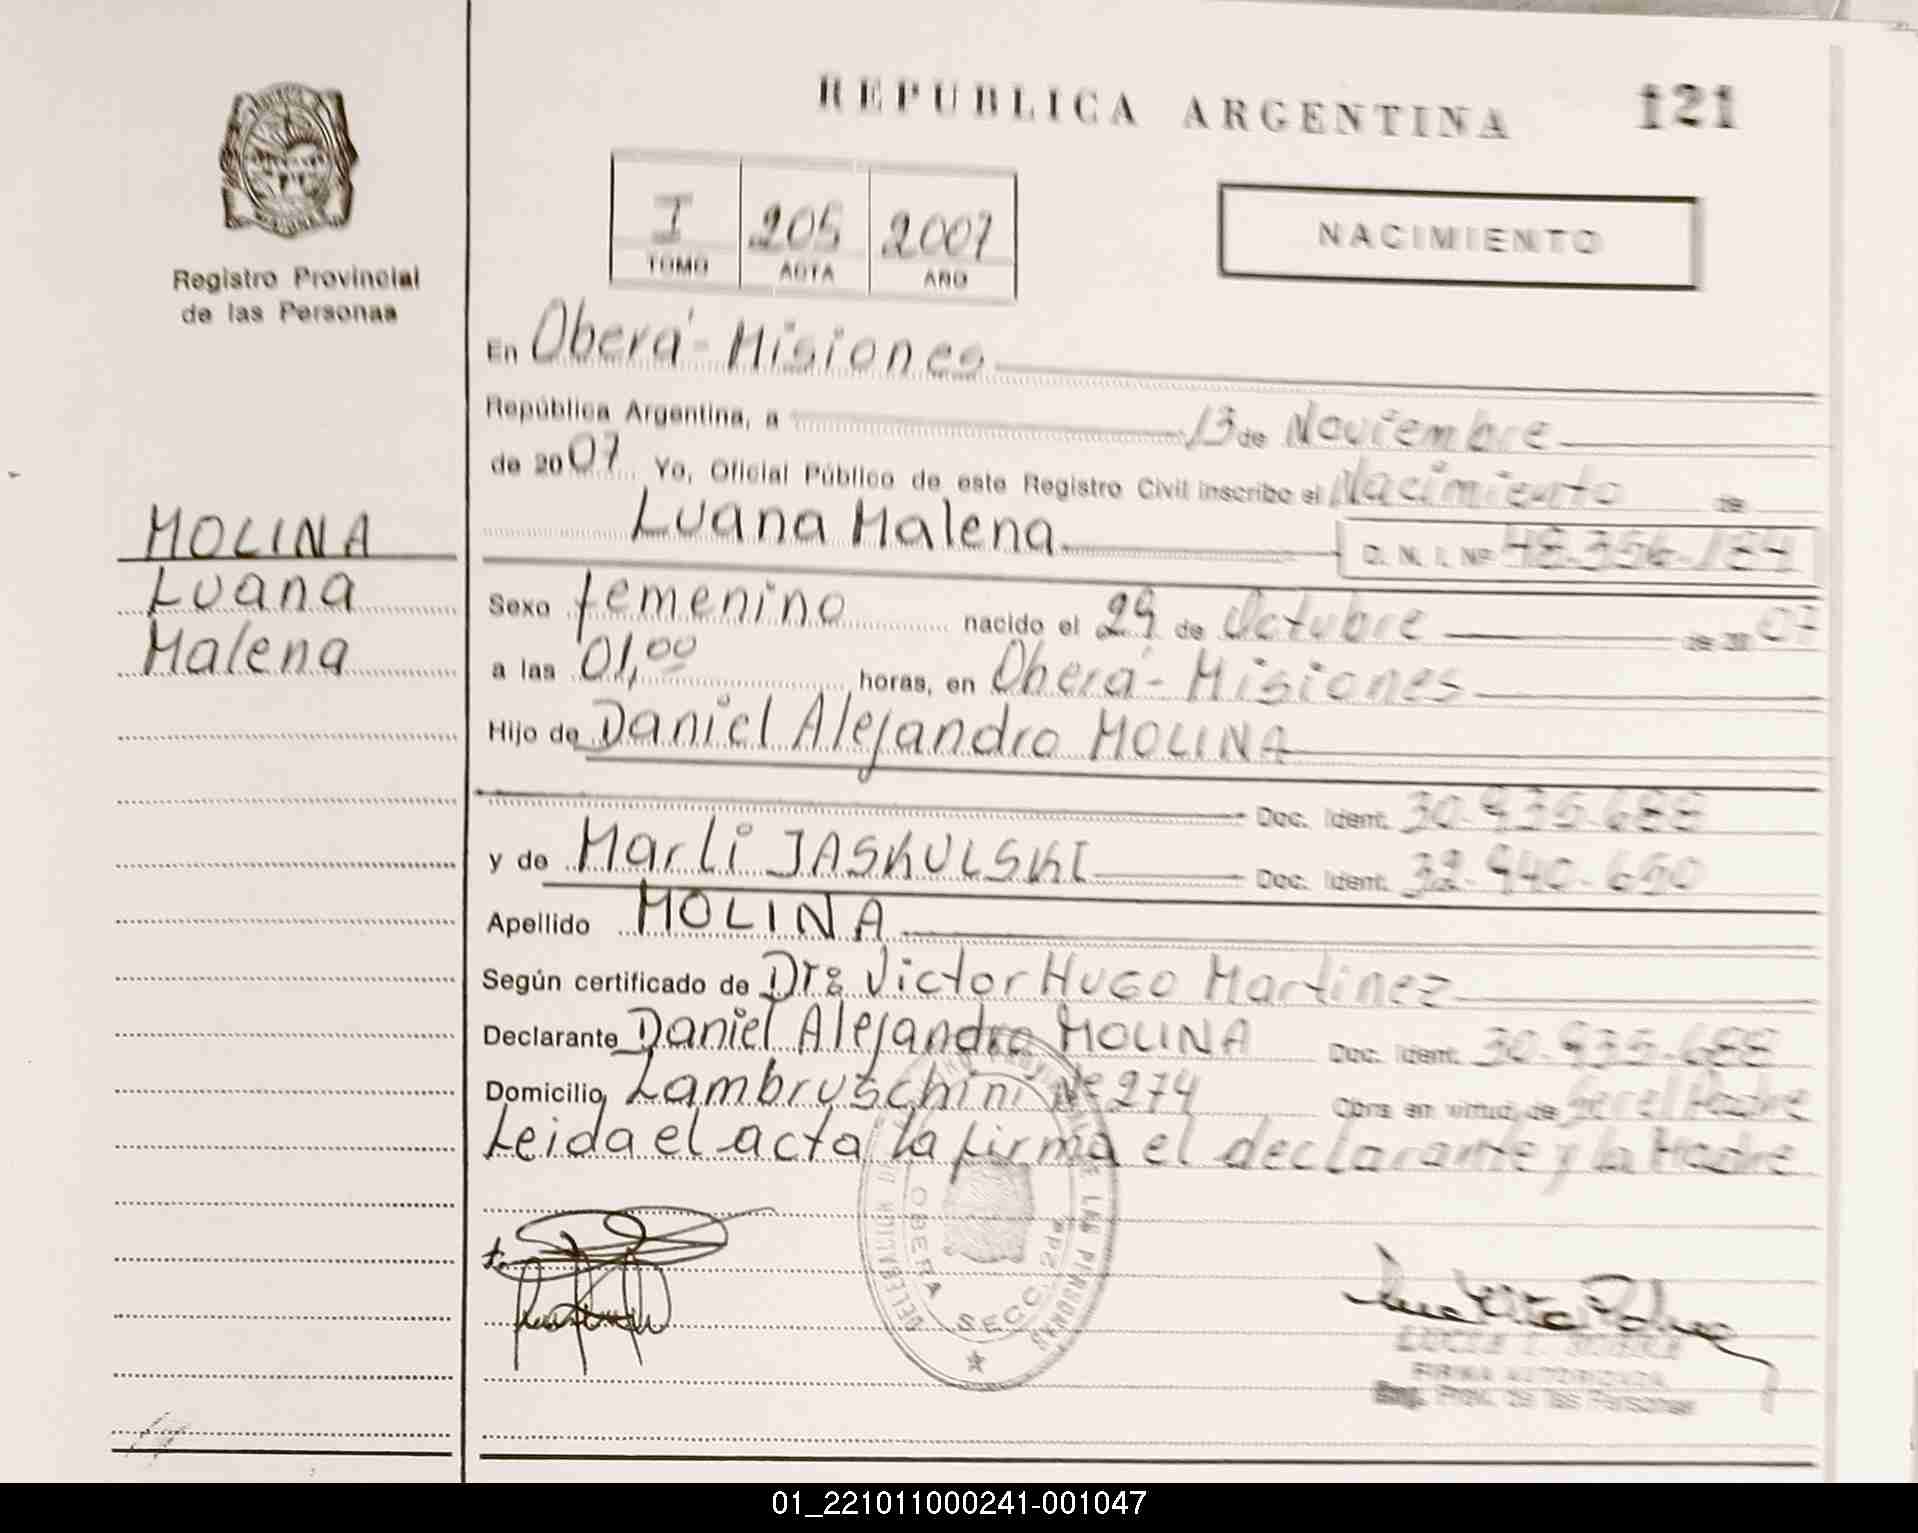 REPUBLICA ARGENTINA
121
Registro Provincial
de las Personas
I 205 2007
TOMO ACTA AÑO
NACIMIENTO
En Oberá - Misiones
República Argentina, a 13 de Noviembre
de 2007 Yo, Oficial Público de este Registro Civil inscribo el Nacimiento de
Luana Malena D. N. I. Nº 48.356.184
MOLINA
Luana
Malena
Sexo femenino nacido el 29 de Octubre de 2007
a las 01,00 horas, en Oberá - Misiones
Hijo de Daniel Alejandro MOLINA
Doc. Ident. 30.935.688
y de Marli JASKULSKI Doc. Ident. 32.940.650
Apellido MOLINA
Según certificado de Dr: Victor Hugo Martinez
Declarante Daniel Alejandro MOLINA Doc. Ident. 30.935.688
Domicilio Lambruschini Nº 274 Obra en virtud de Ser el Padre
Leida el acta la firma el declarante y la Madre
DELEGACION
LAS PERSONAS
OBERA SECC. 2da
FIRMA AUTORIZADA
Reg. Prov. de las Personas
01_221011000241-001047